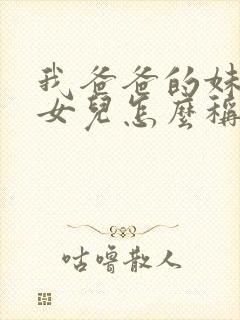 我爸爸的妹
女兒怎麼稱
咕噜散人